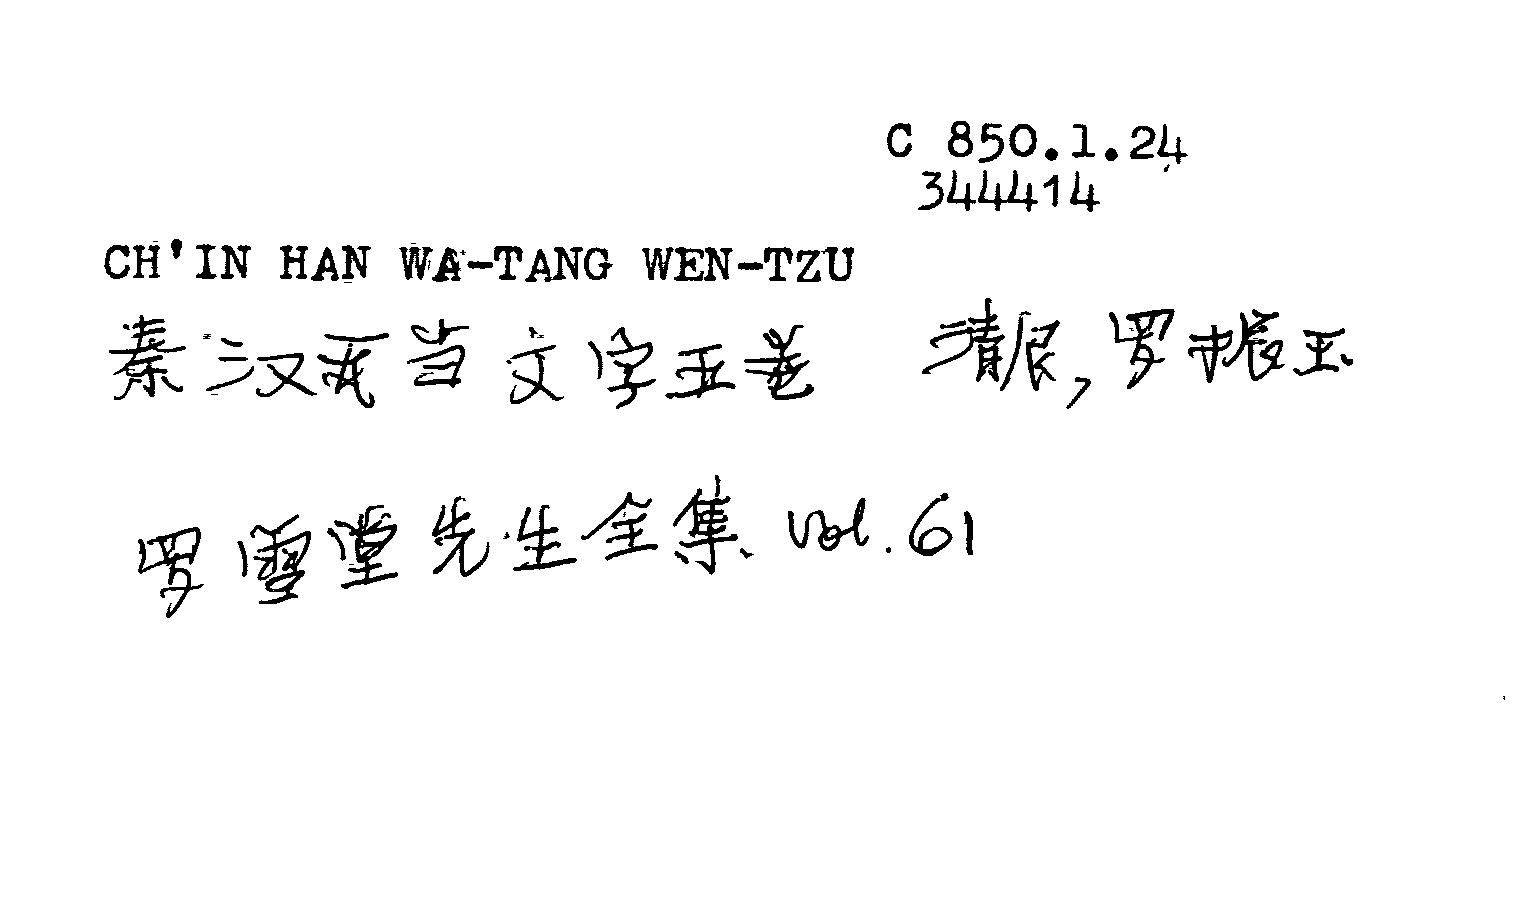 C 850.1.24
344414
CH'IN HAN WA-TANG WEN-TZU
秦汉瓦当文字五卷 清民, 罗振玉
罗雪堂先生全集. Vol. 61